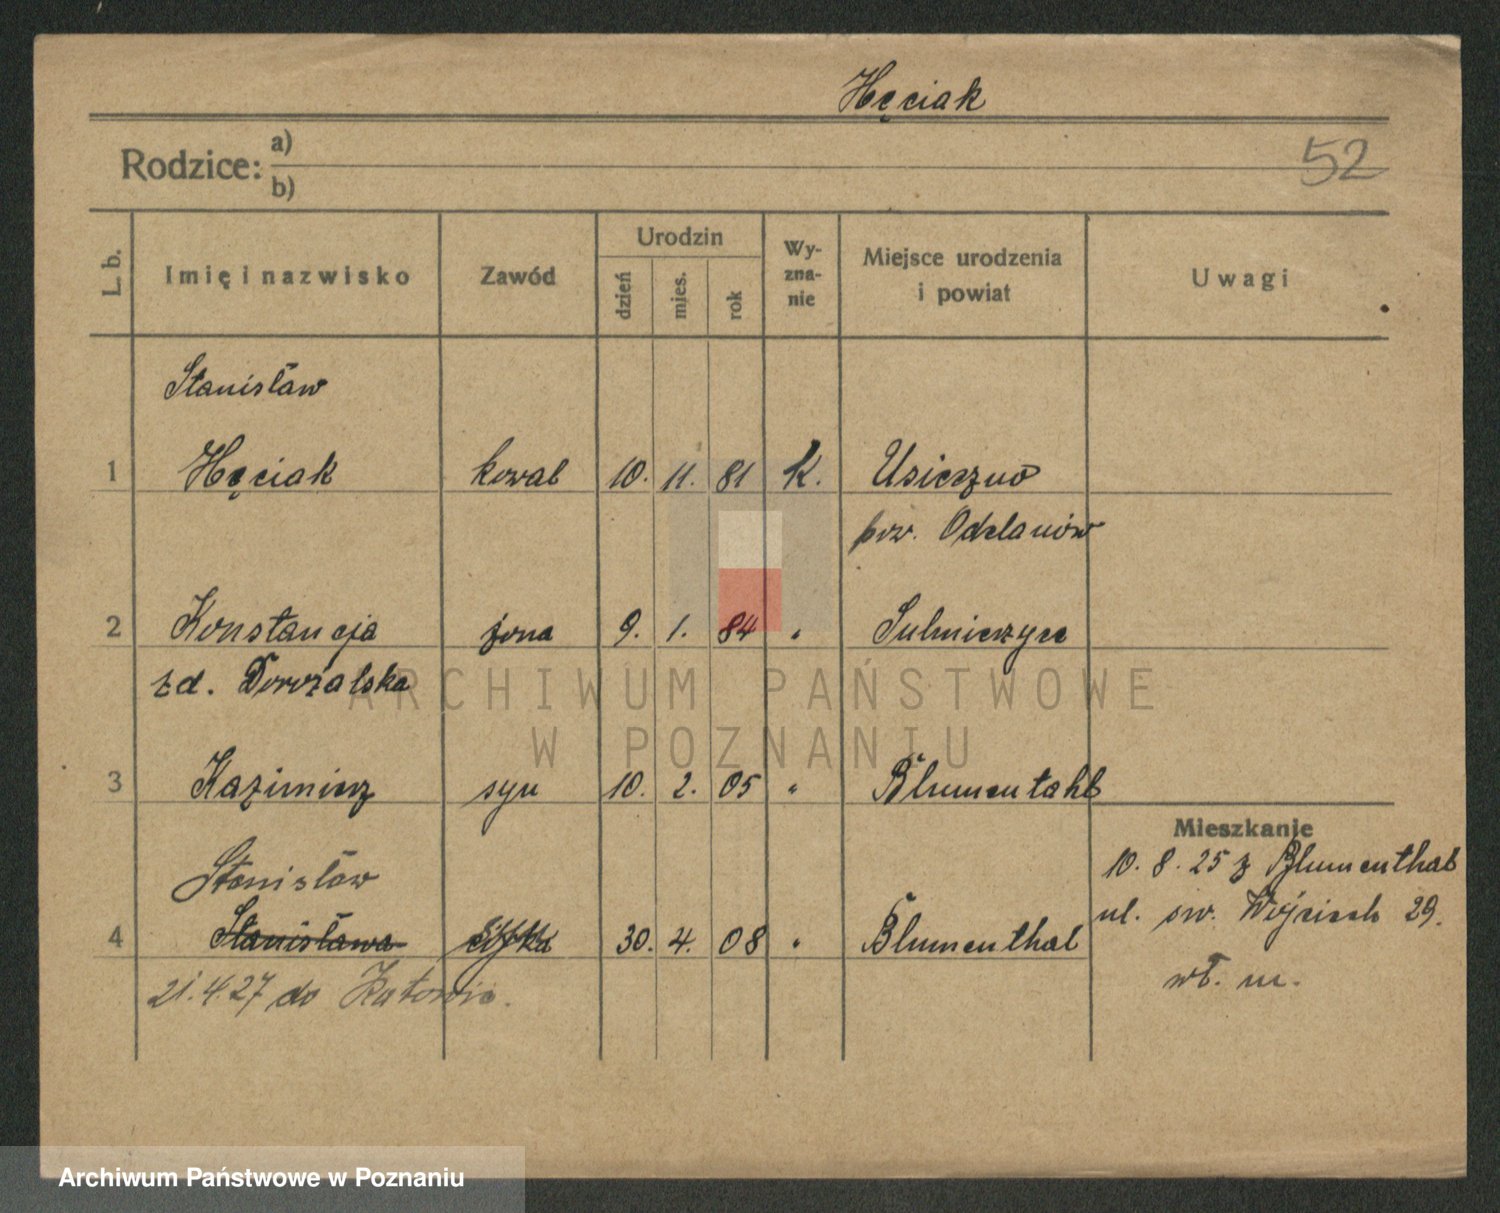 Hęciak
Rodzice: a)
b)
52
L. b. Imię i nazwisko Zawód Urodzin dzień mies. rok Wy-zna-nie Miejsce urodzenia i powiat Uwagi
Stanisław
1 Hęciak kowal 10. 11. 81 K.
pow. Odolanów
2 Konstancja żona 9. 1. 84 " Sulmierzyce
zd. Dorożalska
ARCHIWUM PAŃSTWOWE
W POZNANIU
3 Kazimierz syn 10. 2. 05 " Blumentahl
Mieszkanie
Stanisław
10. 8. 25 z Blumenthal
4 Stanisława córka 30. 4. 08 " Blumenthal
ul. św. Wojciech 29.
21.4.27 do Katowic.
wł. m.
Archiwum Państwowe w Poznaniu